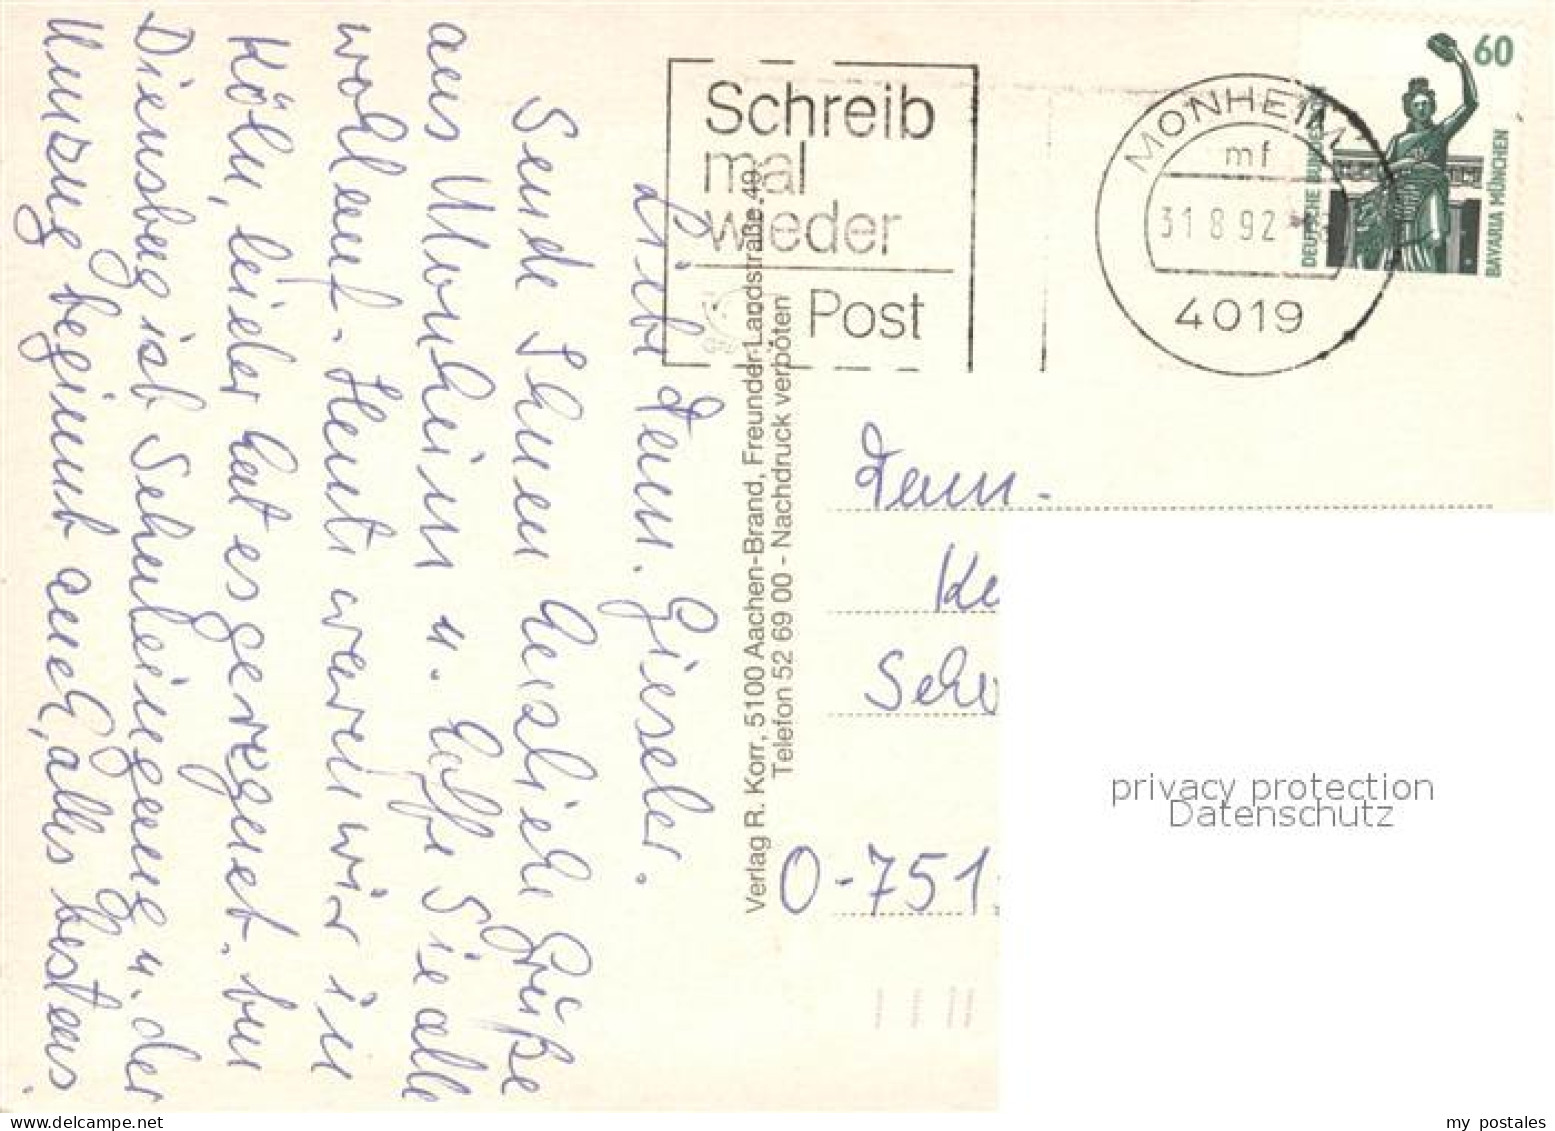 Schreib
mal
wieder
Post
MONHEIM
mf
31.8.92
4019
60
DEUTSCHE BUNDESPOST
BAVARIA MÜNCHEN
Liebe Fam. Gieseler.
Sende Ihnen herzliche Grüße
aus Monheim u. hoffe Sie alle
wohlauf. Heute waren wir in
Köln, leider hat es geregnet. Am
Dienstag ist Schuleingang u. der
Umzug beginnt auch, alles bestens.
Verlag R. Korr, 5100 Aachen-Brand, Freunder-Landstraße 49
Telefon 52 69 00 - Nachdruck verboten
Fam.
Ke
Schw
O-751
privacy protection
Datenschutz
my postales